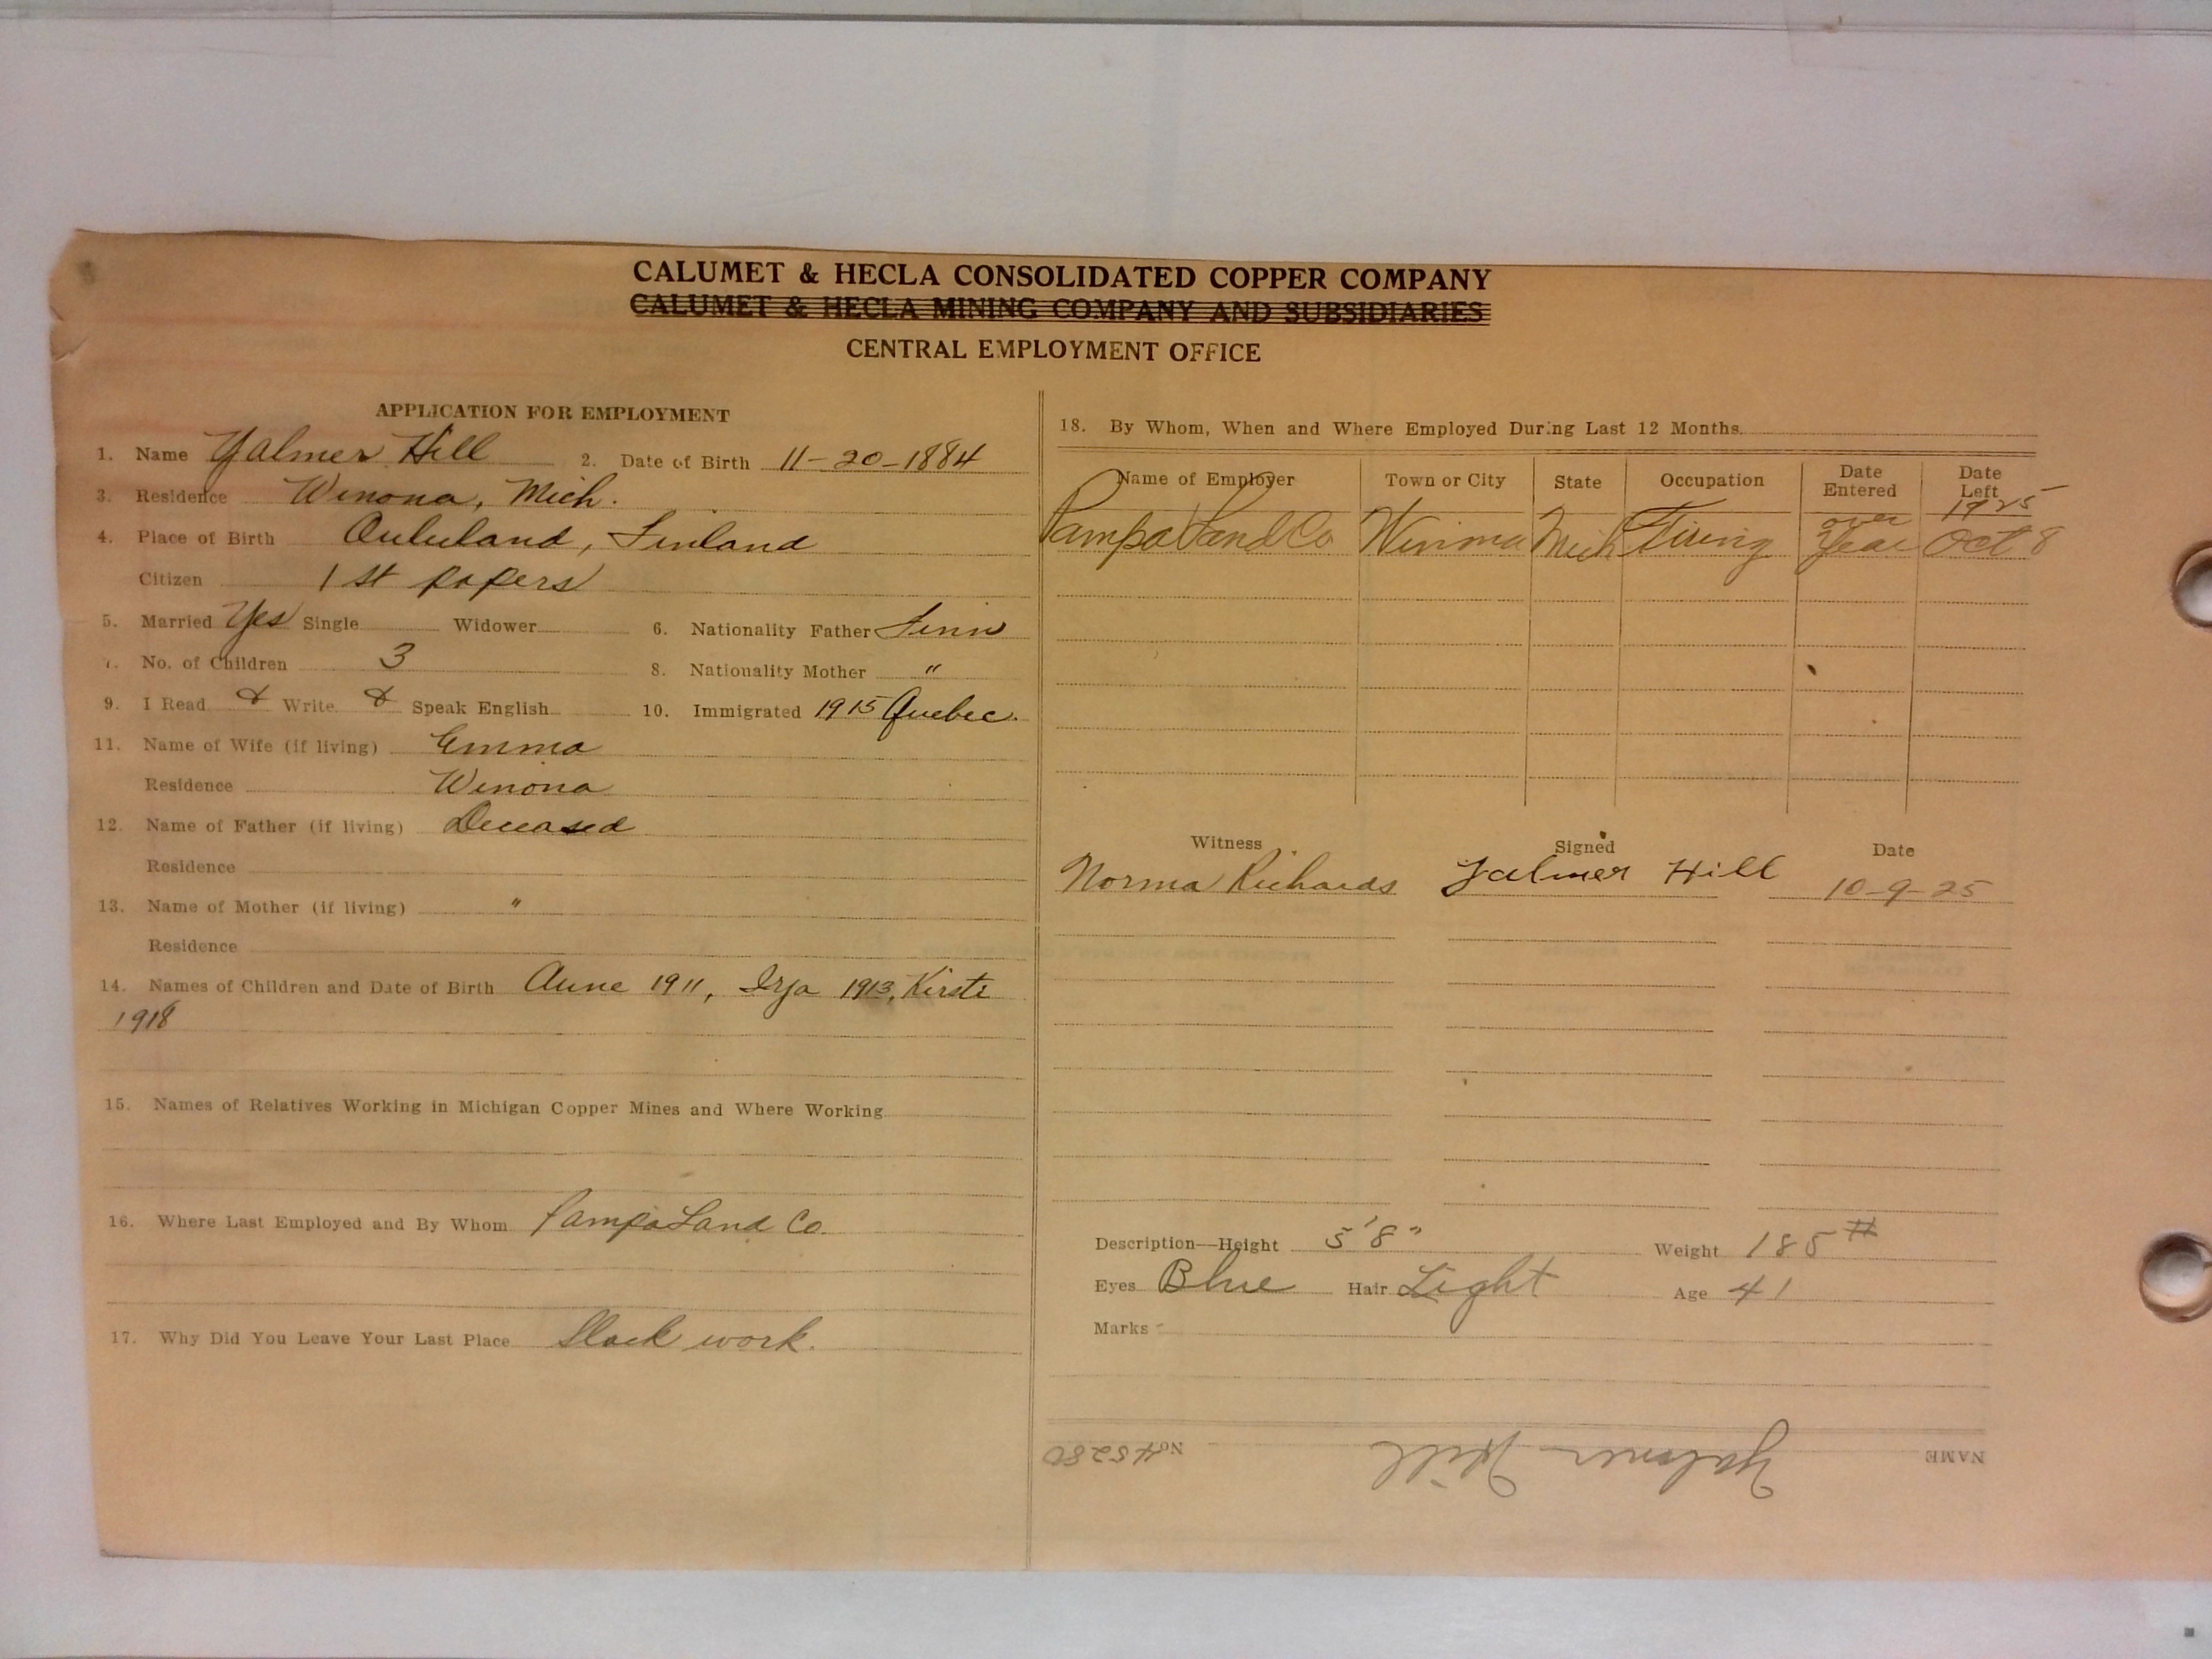 CALUMET & HECLA CONSOLIDATED COPPER COMPANY
CALUMET & HECLA MINING COMPANY AND SUBSIDIARIES
CENTRAL EMPLOYMENT OFFICE
APPLICATION FOR EMPLOYMENT
1. Name Yalmer Hill 2. Date of Birth 11-20-1884
3. Residence Winona, Mich.
4. Place of Birth Oululand, Finland
Citizen 1st papers
5. Married Yes Single Widower 6. Nationality Father Finn
7. No. of Children 3 8. Nationality Mother "
9. I Read & Write & Speak English 10. Immigrated 1915 Quebec.
11. Name of Wife (if living) Emma
Residence Winona
12. Name of Father (if living) Deceased
Residence
13. Name of Mother (if living) "
Residence
14. Names of Children and Date of Birth Aune 1911, Irja 1913, Kirsti
1918
15. Names of Relatives Working in Michigan Copper Mines and Where Working
16. Where Last Employed and By Whom Pampa Land Co.
17. Why Did You Leave Your Last Place Slack work.
18. By Whom, When and Where Employed During Last 12 Months.
Name of Employer Town or City State Occupation Date Entered Date Left
1925
Pampa Land Co Winona Mich Firing over Year Oct 8
Witness Signed Date
Norma Richards Yalmer Hill 10-9-25
Description—Height 5'8" Weight 185#
Eyes Blue Hair Light Age 41
Marks -
NAME Yalmer Hill No. 45280